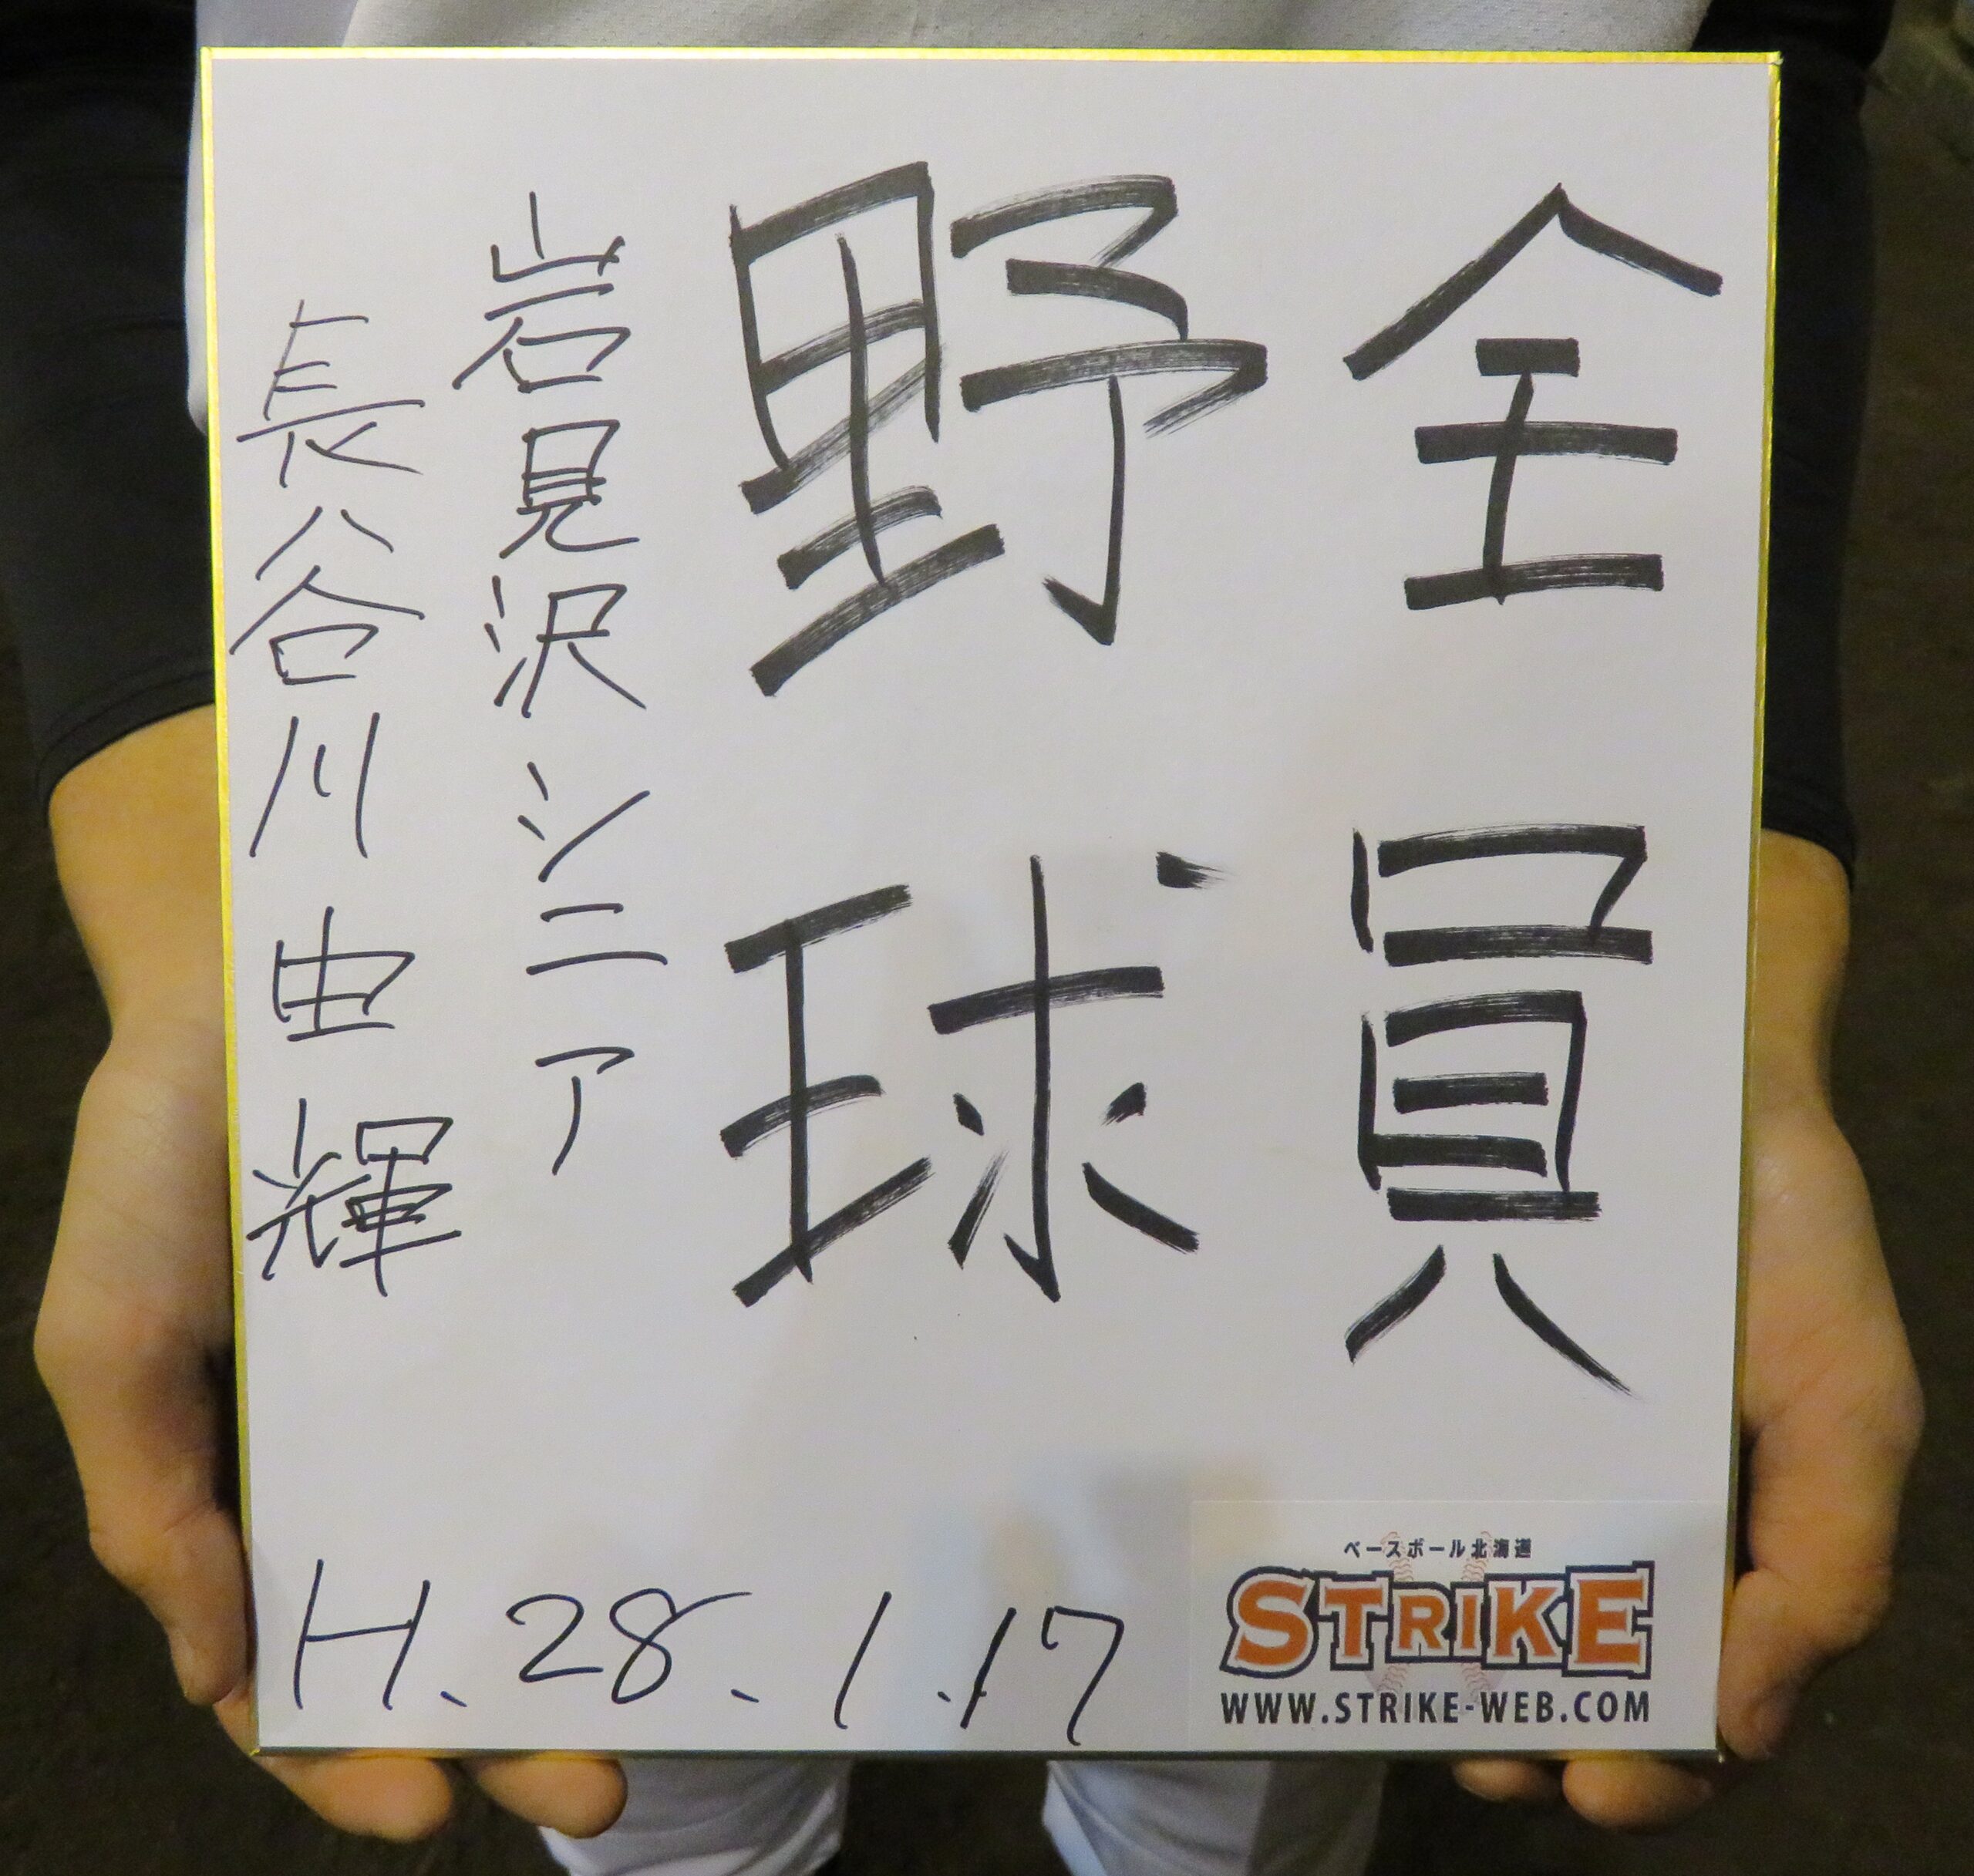 全員
野球
岩見沢シニア
長谷川由輝
H.28.1.17
ベースボール北海道
STRIKE
WWW.STRIKE-WEB.COM